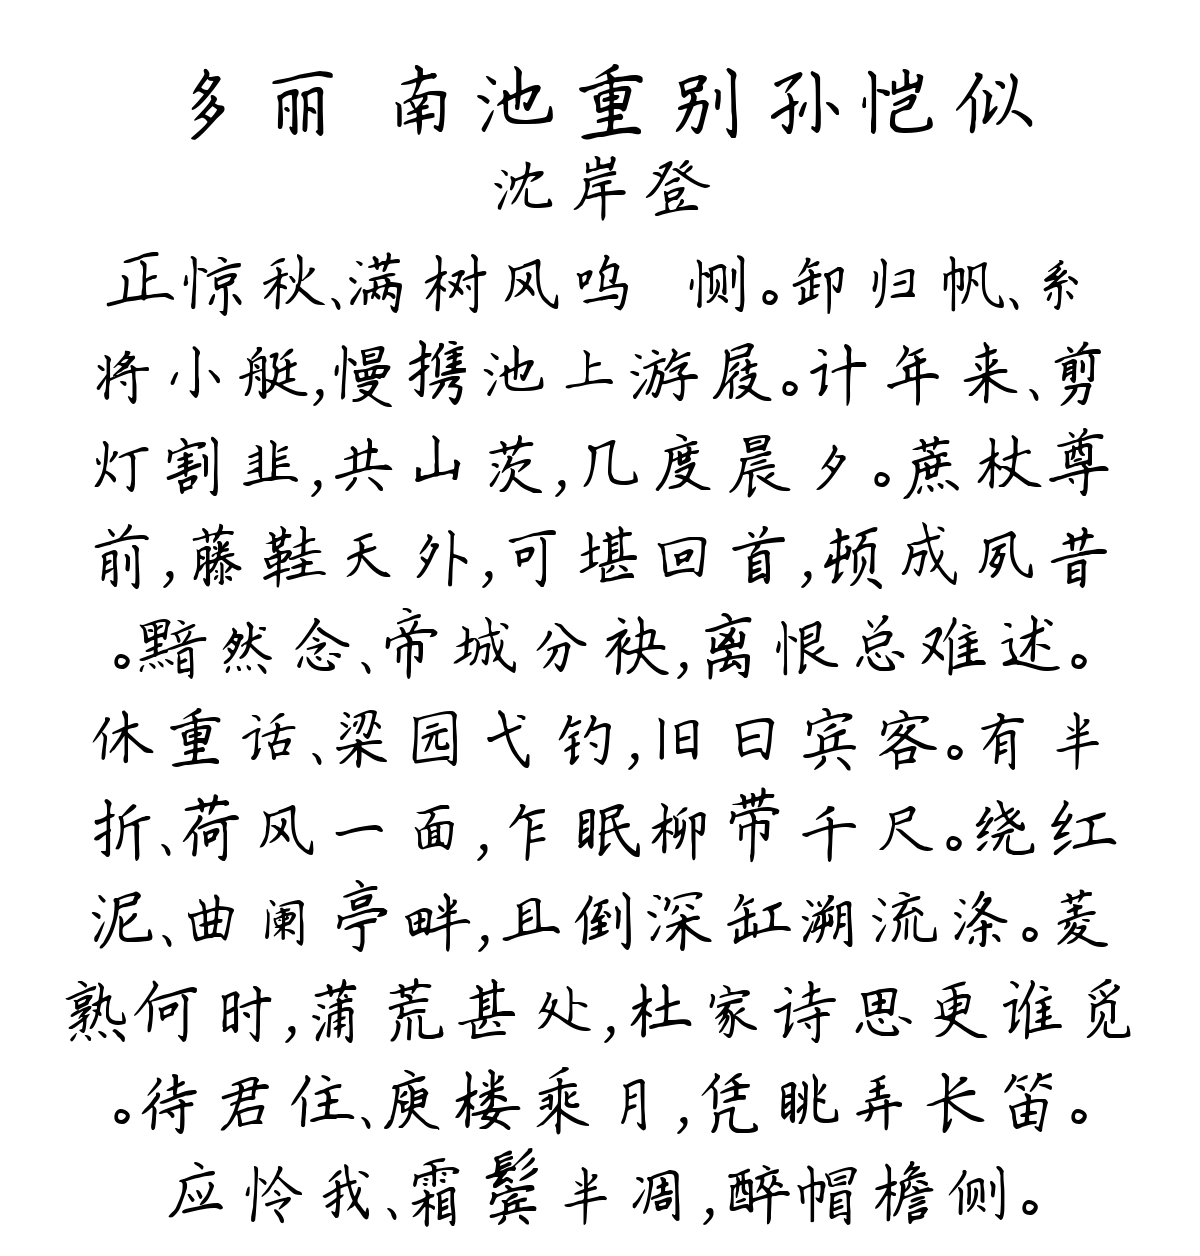 多丽 南池重别孙恺似
沈岸登
正惊秋、满树风呜 恻。卸归帆、系
将小艇,慢携池上游屐。计年来、剪
灯割韭,共山茨,几度晨夕。蔗杖尊
前,藤鞋天外,可堪回首,顿成夙昔
。黯然念、帝城分袂,离恨总难述。
休重话、梁园弋钓,旧日宾客。有半
折、荷风一面,乍眠柳带千尺。绕红
泥、曲阑亭畔,且倒深缸溯流涤。菱
熟何时,蒲荒甚处,杜家诗思更谁觅
。待君住、庾楼乘月,凭眺弄长笛。
应怜我、霜鬓半凋,醉帽檐侧。